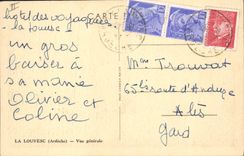 hotel des voyageurs
CARTE
la Louvesc
un gros
baiser à
sa mamie
Olivier et
Coline
Mme Trouvat
65 route d'Anduze
Alès
Gard
LA LOUVESC (Ardèche) - Vue générale